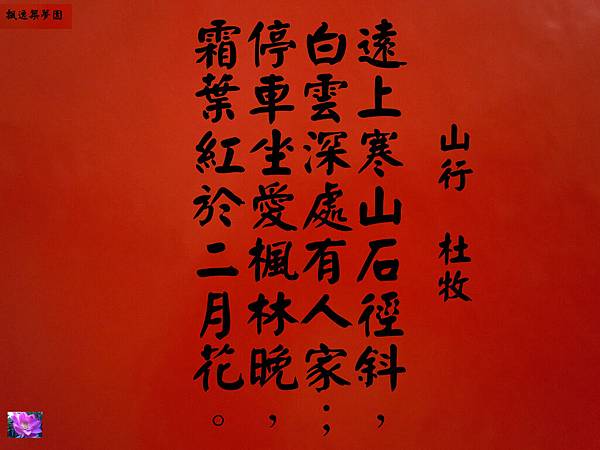 飄逸築夢園
山行 杜牧
遠上寒山石徑斜，
白雲深處有人家；
停車坐愛楓林晚，
霜葉紅於二月花。